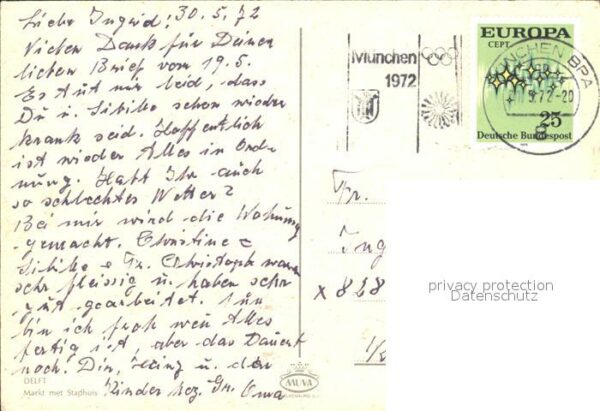 Liebe Ingrid! 30.5.72
Vielen Dank für Deinen
lieben Brief vom 19.5.
Es tut mir leid, dass
Du u. Sibille schon wieder
krank seid. Hoffentlich
ist wieder Alles in Ord-
nung. Habt Ihr auch
so schlechtes Wetter?
Bei mir wird die Wohnung
gemacht. Christine
Sibille Christoph waren
sehr fleissig u. haben sehr
gut gearbeitet. Nun
bin ich froh wen Alles
fertig ist, aber das Dauert
noch. Dir, Heinz u. den
Kinder Gr. Oma
DELFT
Markt met Stadhuis
MUVA
München
1972
EUROPA
CEPT
25
Deutsche Bundespost
MÜNCHEN BPA
5.72-20
Fr.
Ing
x 828
privacy protection
Datenschutz